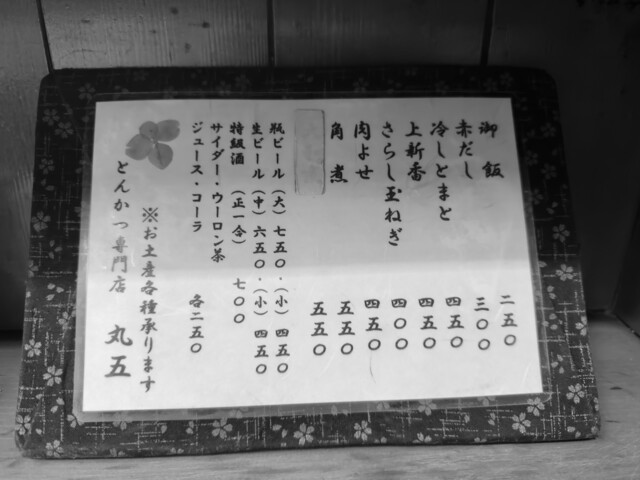 御飯 二五〇
赤だし 三〇〇
冷しとまと 四五〇
上新香 四五〇
さらし玉ねぎ 四〇〇
肉よせ 四五〇
角煮 五五〇
五五〇
瓶ビール(大)七五〇・(小)四五〇
生ビール(中)六五〇・(小)四五〇
特級酒(正一合) 七〇〇
サイダー・ウーロン茶
ジュース・コーラ 各二五〇
※お土産各種承ります
とんかつ専門店 丸五